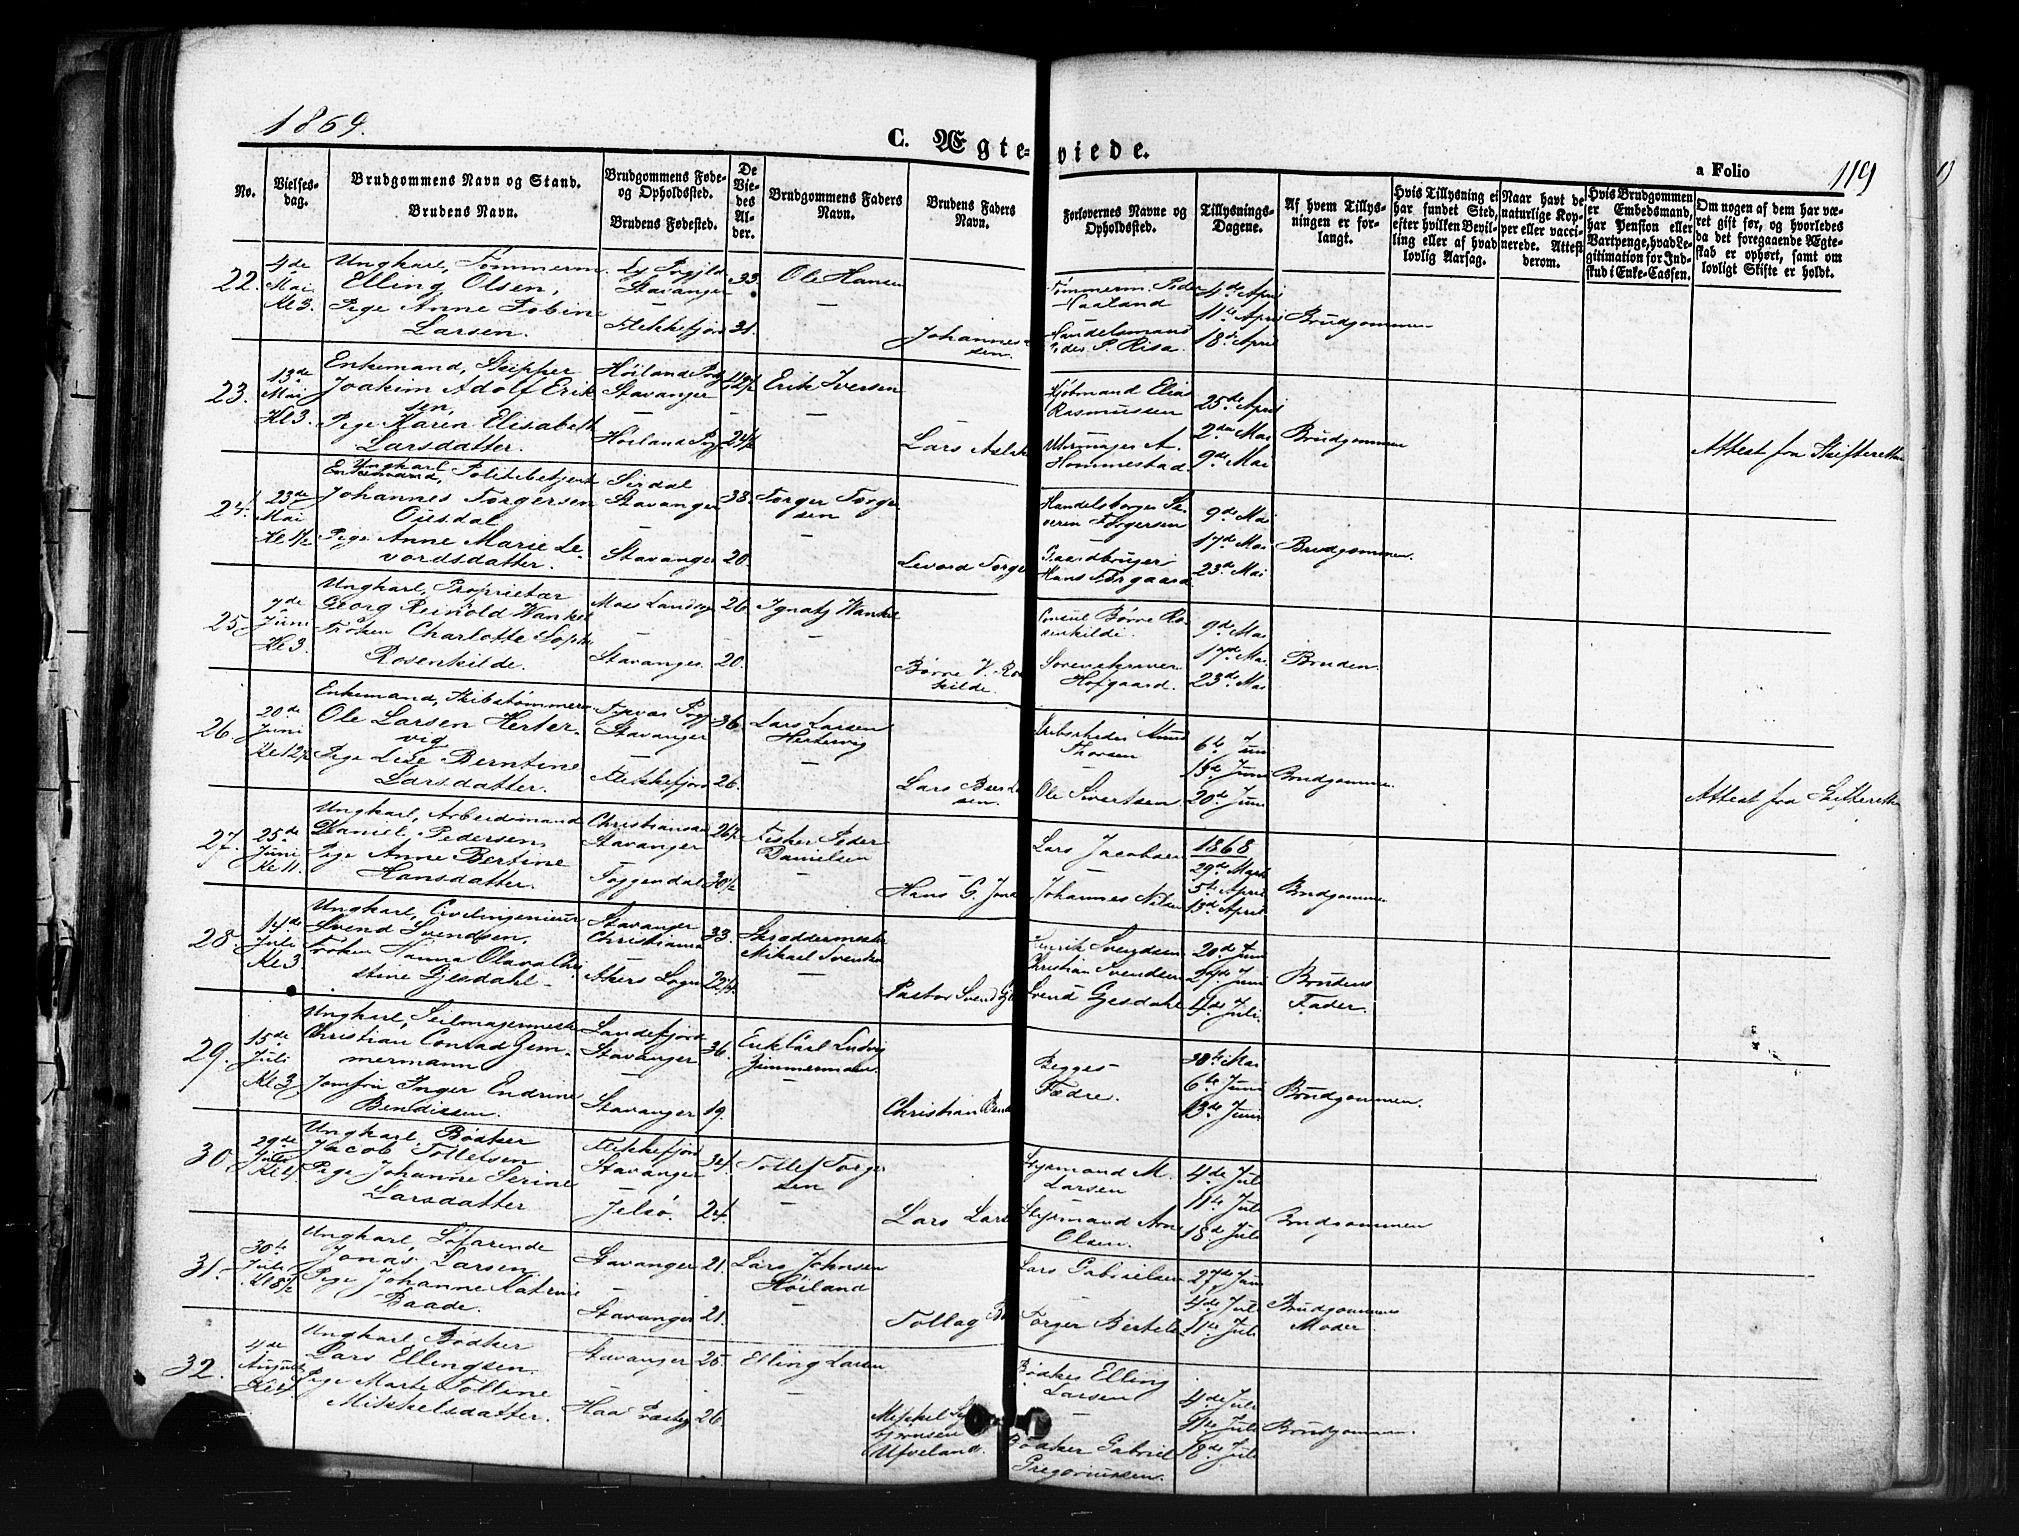 1869.
C. Ægte-viede.
a Folio 119
No.
Vielses-
dag.
Brudgommens Navn og Stand.
Brudens Navn.
Brudgommens Føde-
og Opholdssted.
Brudens Fødested.
De
Vie-
des
Al-
der.
Brudgommens Faders
Navn.
Brudens Faders
Navn.
Forlovernes Navne og
Opholdssted.
Tillysnings-
Dagene.
Af hvem Tillys-
ningen er for-
langt.
Hvis Tillysning ei
har fundet Sted,
efter hvilken Bevil-
ling eller af hvad
lovlig Aarsag.
Naar havt de
naturlige Kop-
per eller vacci-
nerede. Attest
derom.
Hvis Brudgommen
er Embedsmand,
har Pension eller
Vartpenge, hvad Le-
gitimation for Ind-
skud i Enke-Cassen.
Om nogen af dem har væ-
ret gift før, og hvorledes
da det foregaaende Ægte-
skab er ophørt, samt om
lovligt Skifte er holdt.
22.
4de
Mai
Kl 3.
Ungkarl, Tømmerm.
Elling Olsen,
Pige Anne Tobine
Larsen.
Stavanger
Flekkefjord
33.
31.
Ole Hansen
—
Johannes
sen.
Tømmerm. Peder
Haaland
Handelsmand
Peder S. Risa.
4de April
11te April
18de April
Brudgommen
23.
13de
Mai
Kl 3
Enkemand, Skipper
Joakim Adolf Erik
sen,
Pige Karen Elisabeth
Larsdatter.
Høiland Prgj
Stavanger
—
Høiland Prgj
24½
Erik Iversen
—
Lars Aslak
Kjøbmand Elias
Rasmussen
Uhrmager A.
Hommestad
25de April
2den Mai
9de Mai
Brudgommen
Attest fra Skifteretten
24.
23de
Mai
Kl 1½
Ungkarl
Enkemand, Politibetjent
Johannes Torgersen
Ousdal
Pige Anne Marie Le-
vordsdatter.
Sirdal
Stavanger
—
Stavanger
38.
20.
Torger Torger
sen
—
Levord Torger
Handelsborger Se-
verin Torgersen
Gaardbruger
Hans Torgaard
9de Mai
17de Mai
23de Mai
Brudgommen.
25.
7de
Juni
Kl 3.
Ungkarl, Proprietær
Georg Reinold Wankel
Frøken Charlotte Soph
Rosenkilde.
Moss Landsogn
—
Stavanger.
26.
20.
Ignatz Wankel
—
Børre V. Ros
kilde.
Consul Børre Ro-
senkilde.
Sorenskriver
Hofgaard.
9de Mai
17de Mai
23de Mai
Bruden.
26.
20de
Juni
Kl 12½
Enkemand, Skibstømmerm
Ole Larsen Herter-
vig
Pige Lise Berntine
Larsdatter.
Tysvær Prgj
Stavanger
—
Flekkefjord
36.
26.
Lars Larsen
Hertervig
—
Lars Bernt
sen.
Skibsrheder Knud
Thorsen
Ole Sivertsen
6te Juni
13de Juni
20de Juni
Brudgommen.
Attest fra Skifteretten
27.
25de
Juni
Kl 11.
Ungkarl, Arbeidsmand
Daniel Pedersen
Pige Anne Bertine
Hansdatter.
Christiansand
Stavanger
—
Toggendal
26½
30½
Fisker Peder
Danielsen
—
Hans G. Jona
Lars Jacobsen
—
Johannes Nilsen
1868
29de Marts
5te April
13de April
Brudgommen
28.
14de
Juli
Kl 3
Ungkarl, Civilingenieur
Svend Svendsen,
Frøken Hanna Olava Chri
stine Gjesdahl —
Stavanger
Christiania
Akers Sogn
33.
22¼
Skræddermester
Mikael Svendsen
—
Pastor Svend Gj
Henrik Svendsen
Christian Svendsen
Svend Gjesdahl
20de Juni
27de Juni
4de Juli.
Brudens
Fader.
29.
15de
Juli
Kl 3
Ungkarl, Seilmagermester
Christian Conrad Zim-
mermann
Jomfru Inger Endrine
Bendixsen.
Sandefjord
Stavanger
—
Stavanger
36.
19.
Erik Carl Ludvig
Zimmermann.
—
Christian Bend
Begges
Fædre.
30te Mai
6te Juni
13de Juni
Brudgommen.
30.
29de
Juli
Kl 4.
Ungkarl, Bødker
Jacob Tolletsen
Pige Johanne Serine
Larsdatter
Flekkefjord
Stavanger
—
Jelsø.
34.
24.
Tollef Torger
sen
—
Lars Lars
Styrmand M.
Larsen
Styrmand Arne
Olsen.
4de Juli
11te Juli
18de Juli
Brudgommen
31.
30te
Juli
Kl 8½
Ungkarl, Søfarende
Jonas Larsen
Pige Johanne Katrine
Baade.
Stavanger
—
Stavanger
21.
21.
Lars Johnsen
Høiland
—
Tollag Ba
Lars Gabrielsen
Torger Bertels
27de Juni
4de Juli
11te Juli
Brudgommens
Moder.
32.
4de
August
Kl 4
Ungkarl, Bødker
Lars Ellingsen.
Pige Marte Tolline
Mikkelsdatter.
Stavanger
—
Haa Præstgj
25.
26.
Elling Larsen
—
Mikkel
bjørnsen
Ufveland.
Bødker Elling
Larsen
—
Bødker Gabriel
Gregoriussen.
4de Juli
11te Juli
18de Juli
Brudgommen.